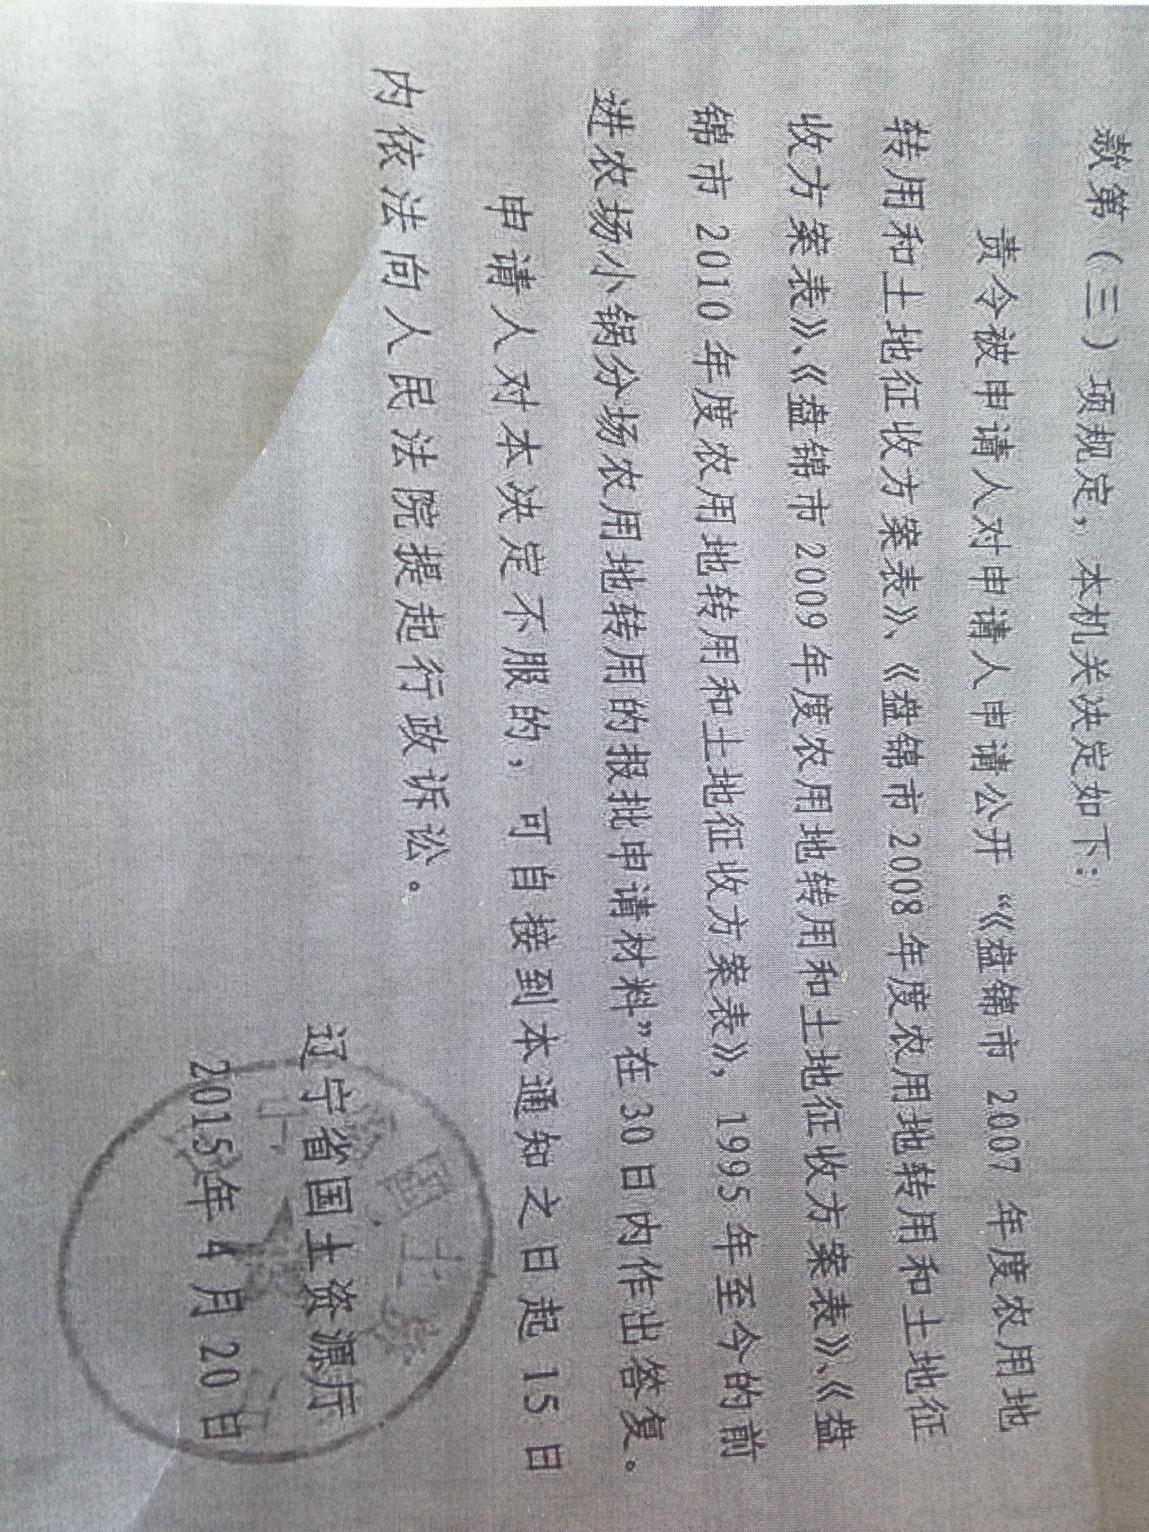 款第（三）项规定，本机关决定如下：
责令被申请人对申请人申请公开“《盘锦市 2007 年度农用地
转用和土地征收方案表》、《盘锦市 2008 年度农用地转用和土地征
收方案表》、《盘锦市 2009 年度农用地转用和土地征收方案表》、《盘
锦市 2010 年度农用地转用和土地征收方案表》，1995 年至今的前
进农场小锅分场农用地转用的报批申请材料”在 30 日内作出答复。
申请人对本决定不服的，可自接到本通知之日起 15 日
内依法向人民法院提起行政诉讼。
辽宁省国土资源厅
2015年4月20日